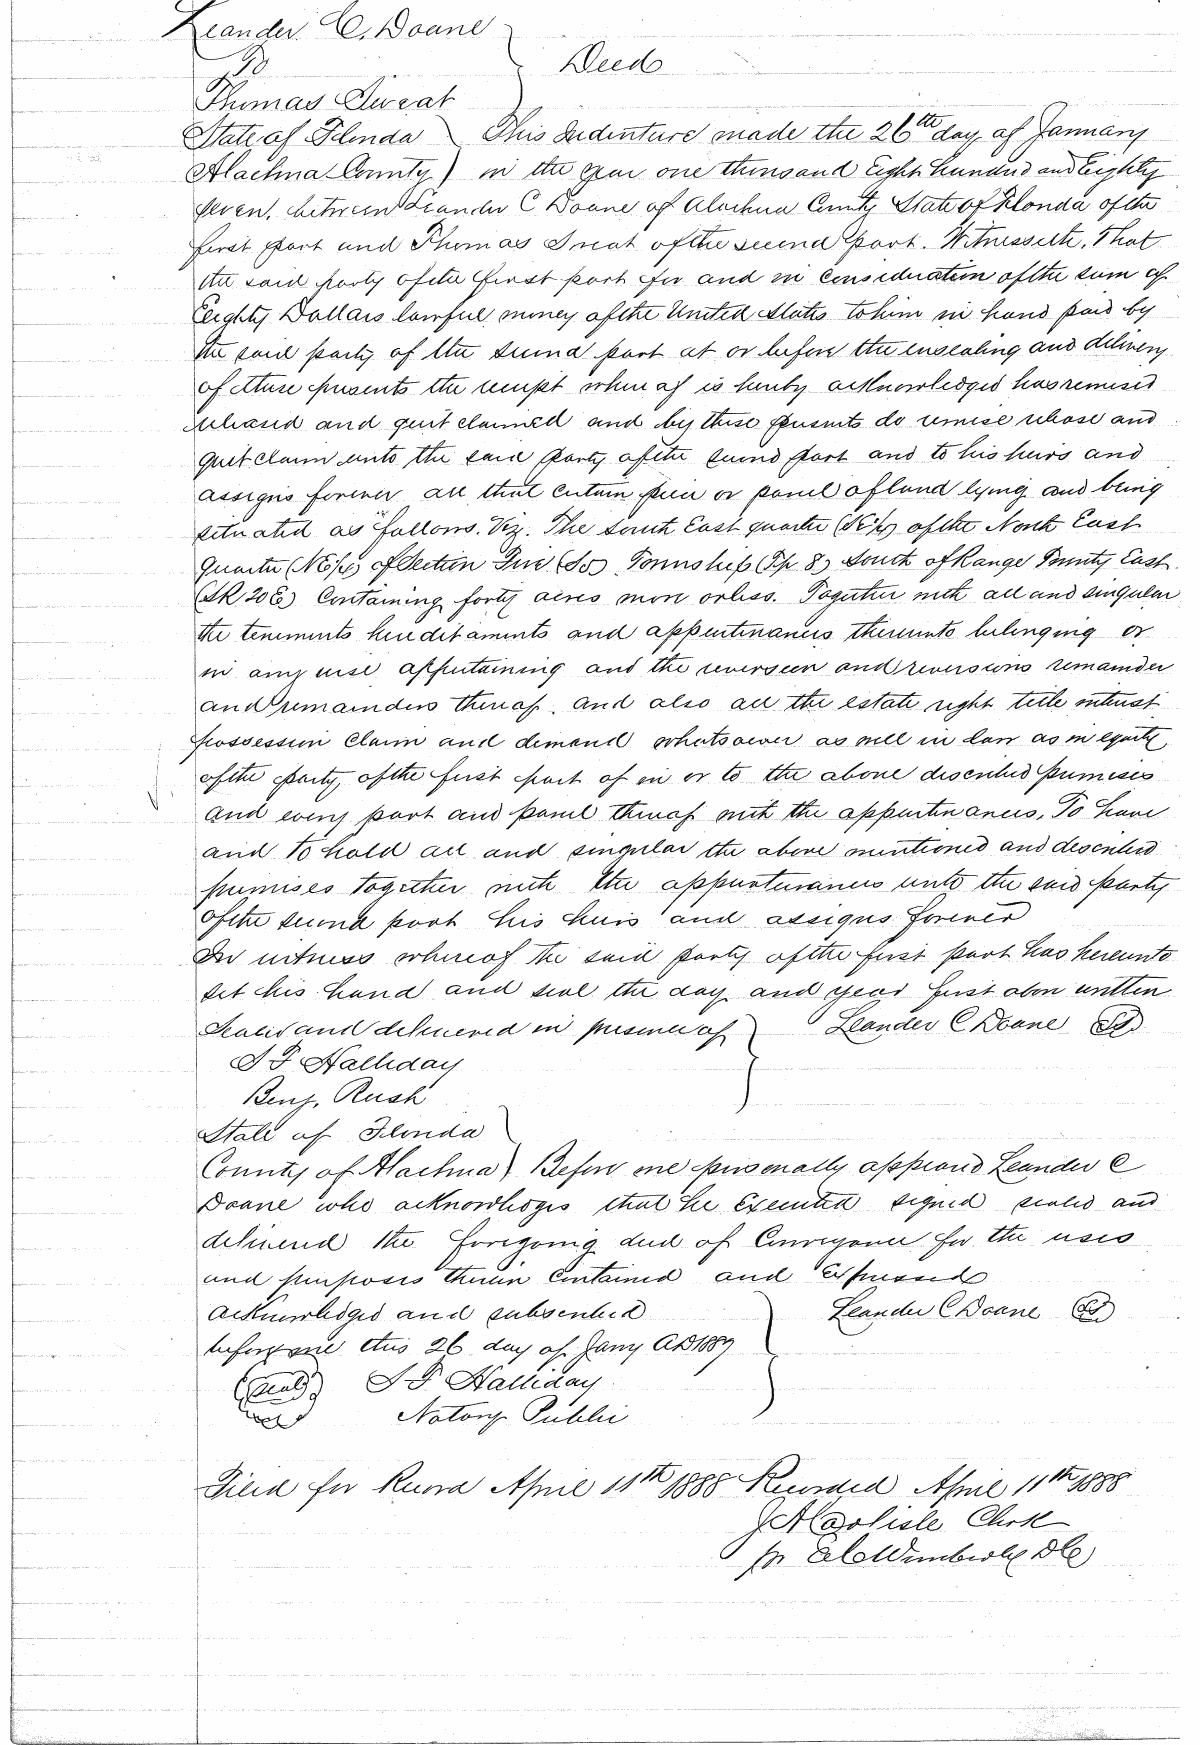 Leander C. Doane
To
Deed
Thomas Sweat
State of Florida ) This Indenture made the 26th day of January
Alachua County ) in the year one thousand Eight hundred and Eighty
seven, between Leander C Doane of Alachua County State of Florida of the
first part and Thomas Sweat of the second part. Witnesseth, That
the said party of the first part for and in consideration of the sum of
Eighty Dollars lawful money of the United States to him in hand paid by
the said party of the second part at or before the ensealing and delivery
of these presents the receipt whereof is hereby acknowledged has remised
released and quit claimed and by these presents do remise release and
quit claim unto the said party of the second part and to his heirs and
assigns forever all that certain piece or parcel of land lying and being
situated as follows. Viz. The South East quarter (SE¼) of the North East
Quarter (NE¼) of Section Five (S5) Township (Tp. 8) South of Range Twenty East
(SR 20 E) Containing forty acres more or less. Together with all and singular
the tenements hereditaments and appurtenances thereunto belonging or
in any wise appertaining and the reversion and reversions remainder
and remainders thereof. and also all the estate right title interest
possession claim and demand whatsoever as well in law as in equity
of the party of the first part of in or to the above described premises
and every part and parcel thereof with the appurtenances, To have
and to hold all and singular the above mentioned and described
premises together with the appurtenances unto the said party
of the second part his heirs and assigns forever
In witness whereof the said party of the first part has hereunto
set his hand and seal the day and year first above written
Sealed and delivered in presence of ) Leander C Doane
S F Halliday
Benj. Rush
State of Florida )
County of Alachua ) Before me personally appeared Leander C
Doane who acknowledges that he Executed signed sealed and
delivered the foregoing deed of Conveyance for the uses
and purposes therein contained and Expressed
acknowledged and subscribed Leander C Doane
before me this 26 day of Jany AD 1887
(Seal) S F Halliday
Notary Public
Filed for Record April 11th 1888 Recorded April 11th 1888
J A Carlisle Clerk
pr Wimberly DC